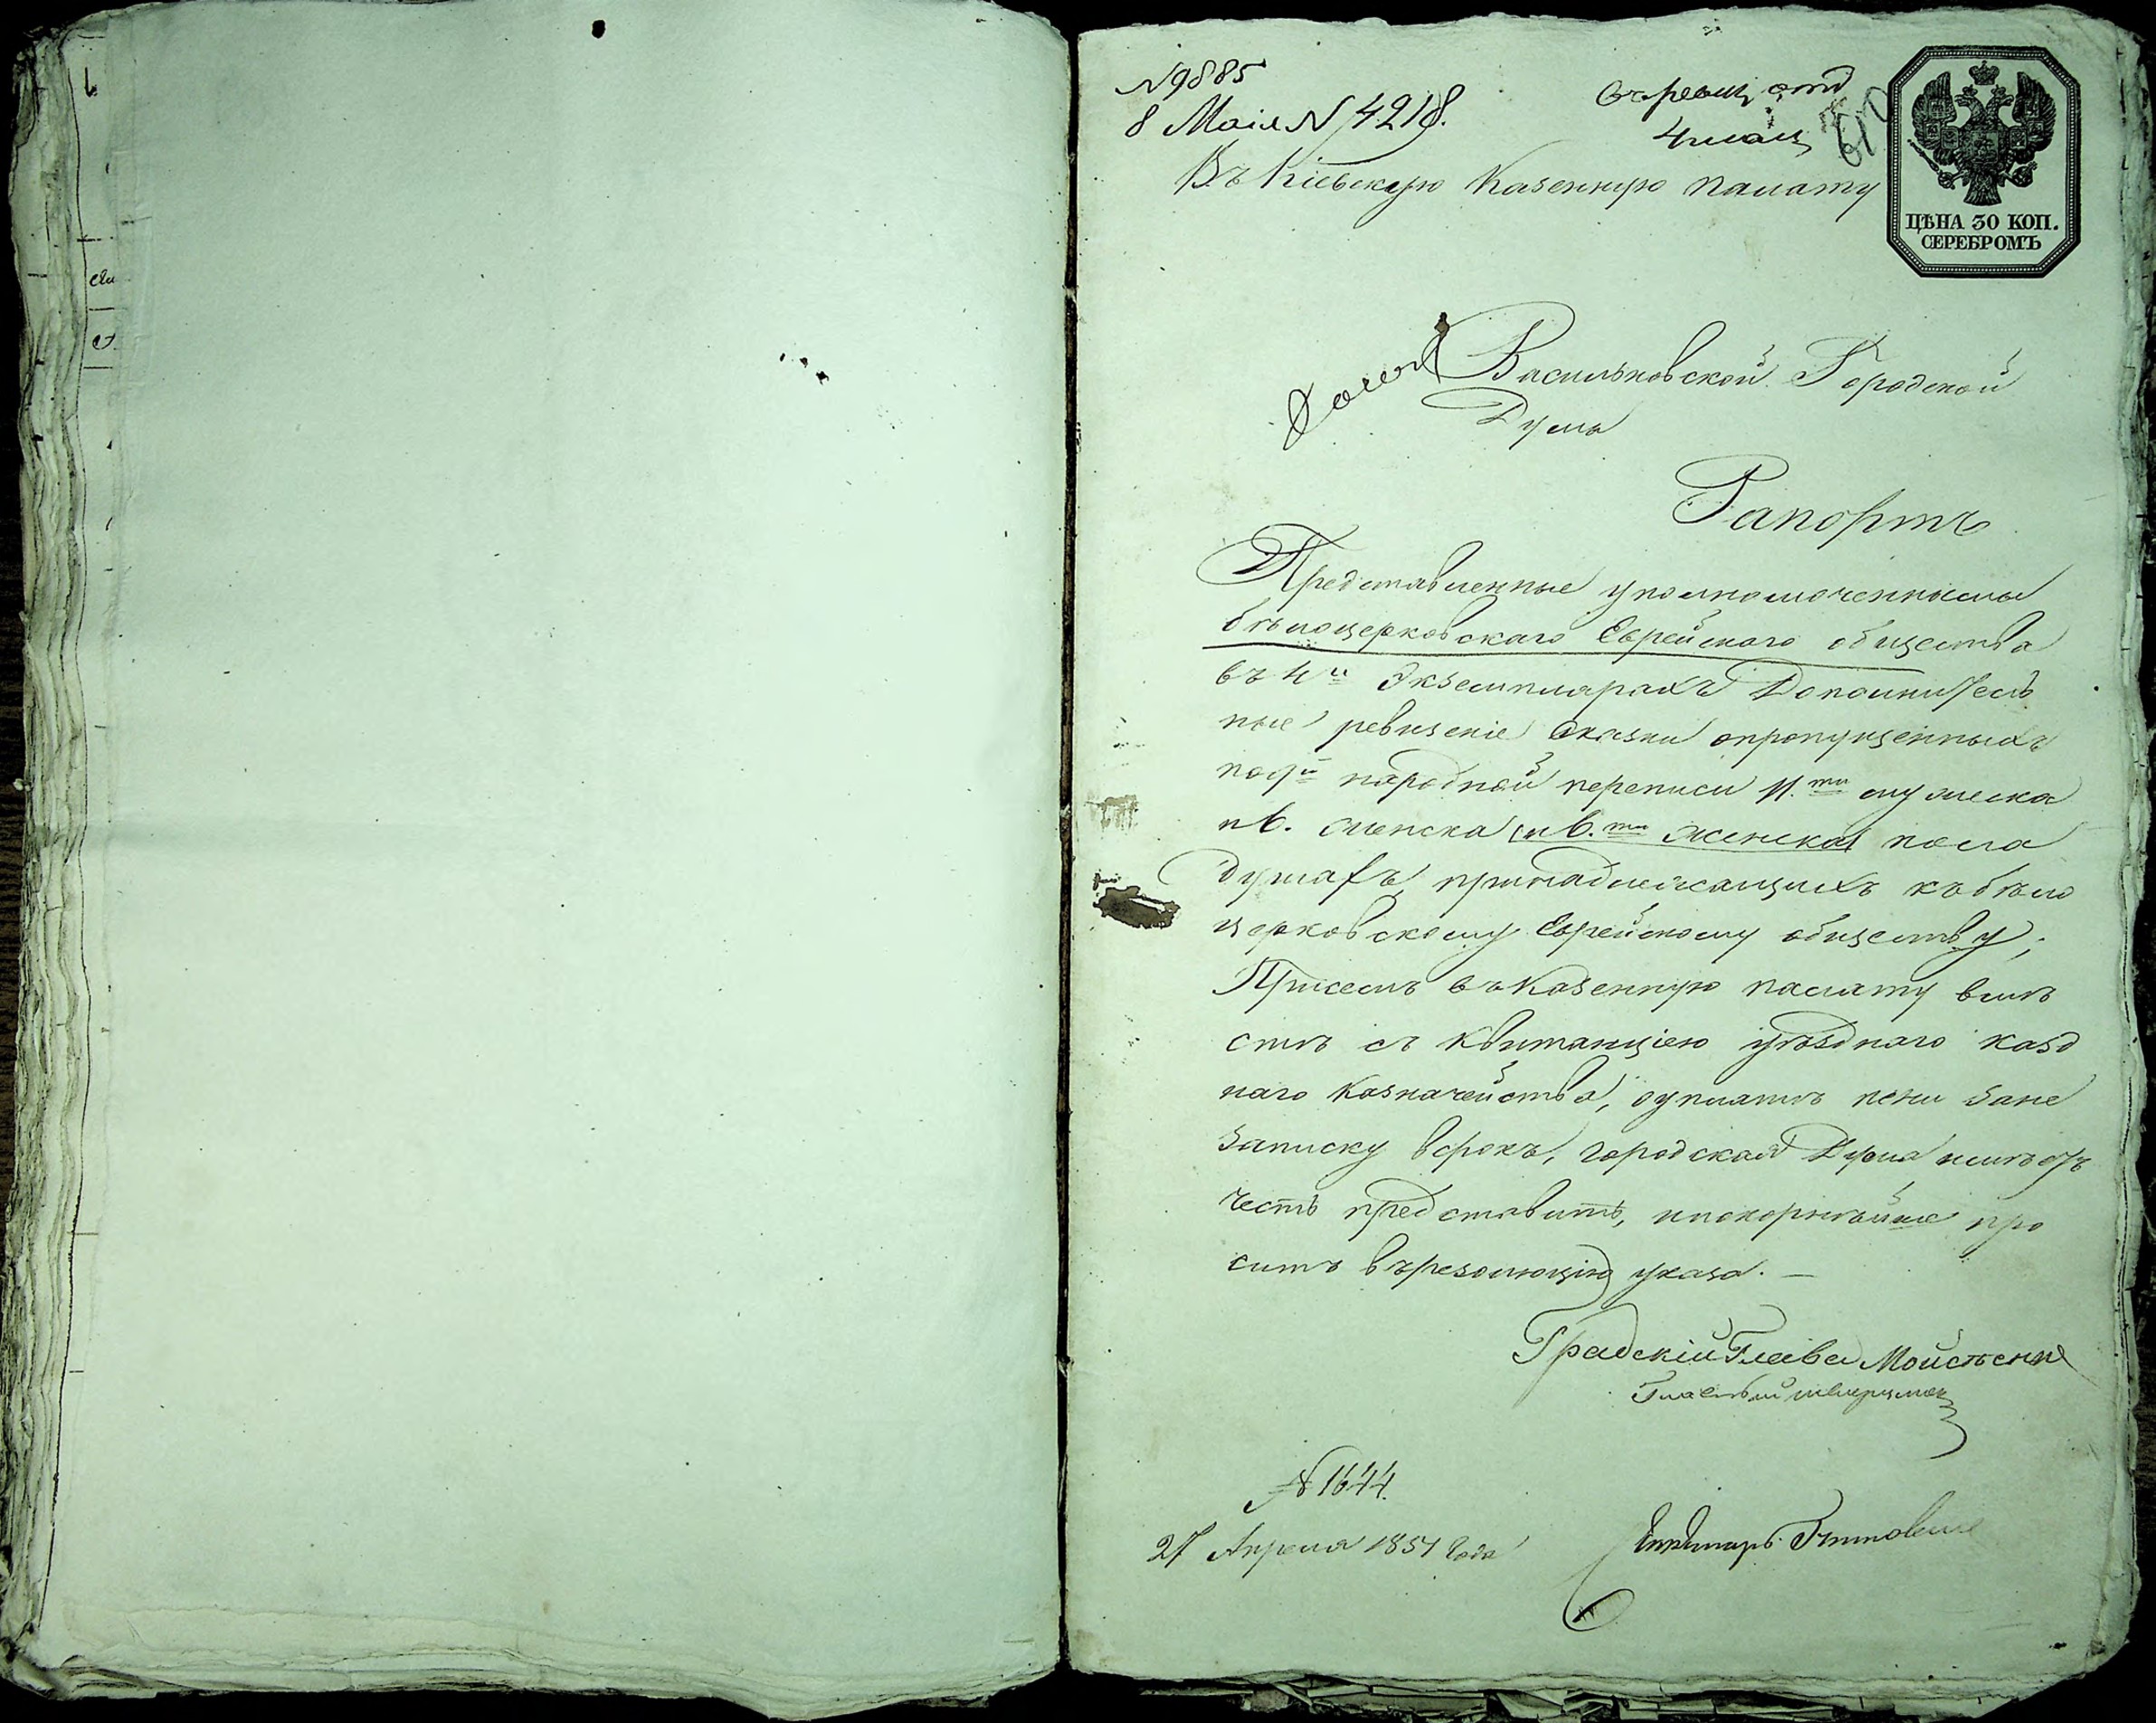 N 9885
8 Маія N 4218.
въ ревиз отд
4 маія
610
Въ Кіевскую Казенную палату
ЦѢНА 30 КОП.
СЕРЕБРОМЪ
Васильковской Городской
Думы
Рапортъ
Представленные уполномоченными
бѣлоцерковскаго Еврейскаго общества
въ 4хъ Экземплярахъ Дополнитель
ные ревизскіе сказки опропущенныхъ
по 9й народной переписи 11.ти мужеска
и 6. женска и 6.ти женска пола
душахъ, принадлежащихъ къ бѣло
церковскому Еврейскому обществу;
Присемъ въ Казенную палату вмѣ
стѣ съ квитанціею уѣзднаго
наго Казначейства, оуплатѣ пени зане
записку всрокъ, городская Дума имѣетъ
честь представить, ипокорнѣйше про
ситъ въ резолюцію указа. —
Градскій Глава
N 1644.
27 Апреля 1851 Года